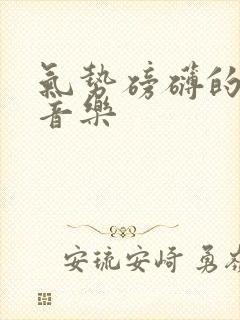 氣勢磅礴的
音樂
安琉安崎 勇